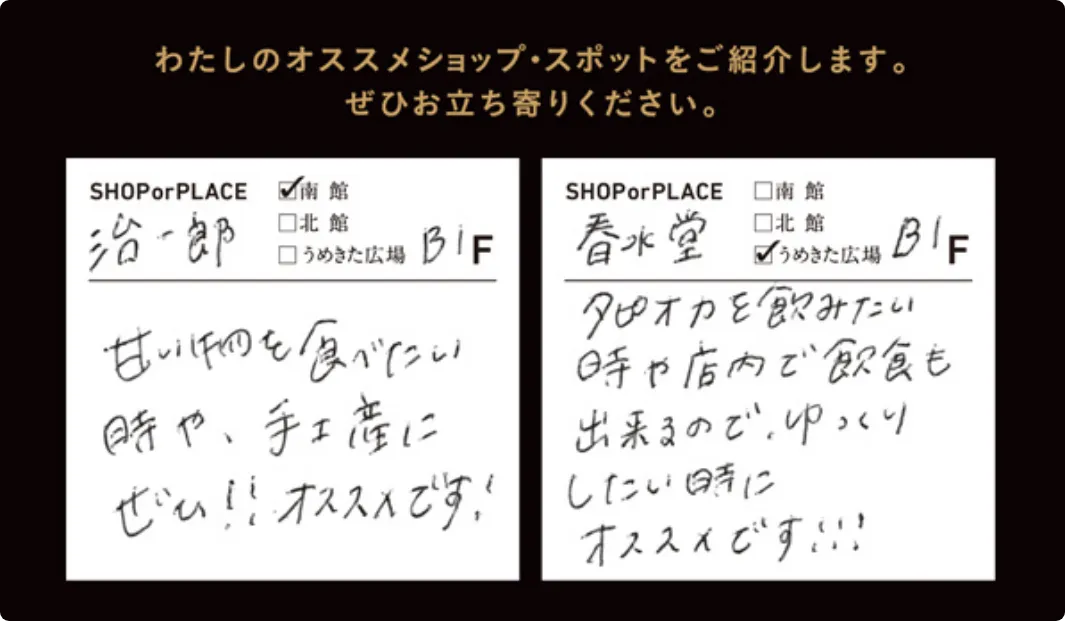 わたしのオススメショップ・スポットをご紹介します。
ぜひお立ち寄りください。
SHOPorPLACE ☑南館
□北館
□うめきた広場
治一郎 B1F
甘い物を食べたい
時や、手土産に
ぜひ!! オススメです!
SHOPorPLACE □南館
□北館
☑うめきた広場
春水堂 B1F
タピオカを飲みたい
時や店内で飲食も
出来るので、ゆっくり
したい時に
オススメです!!!